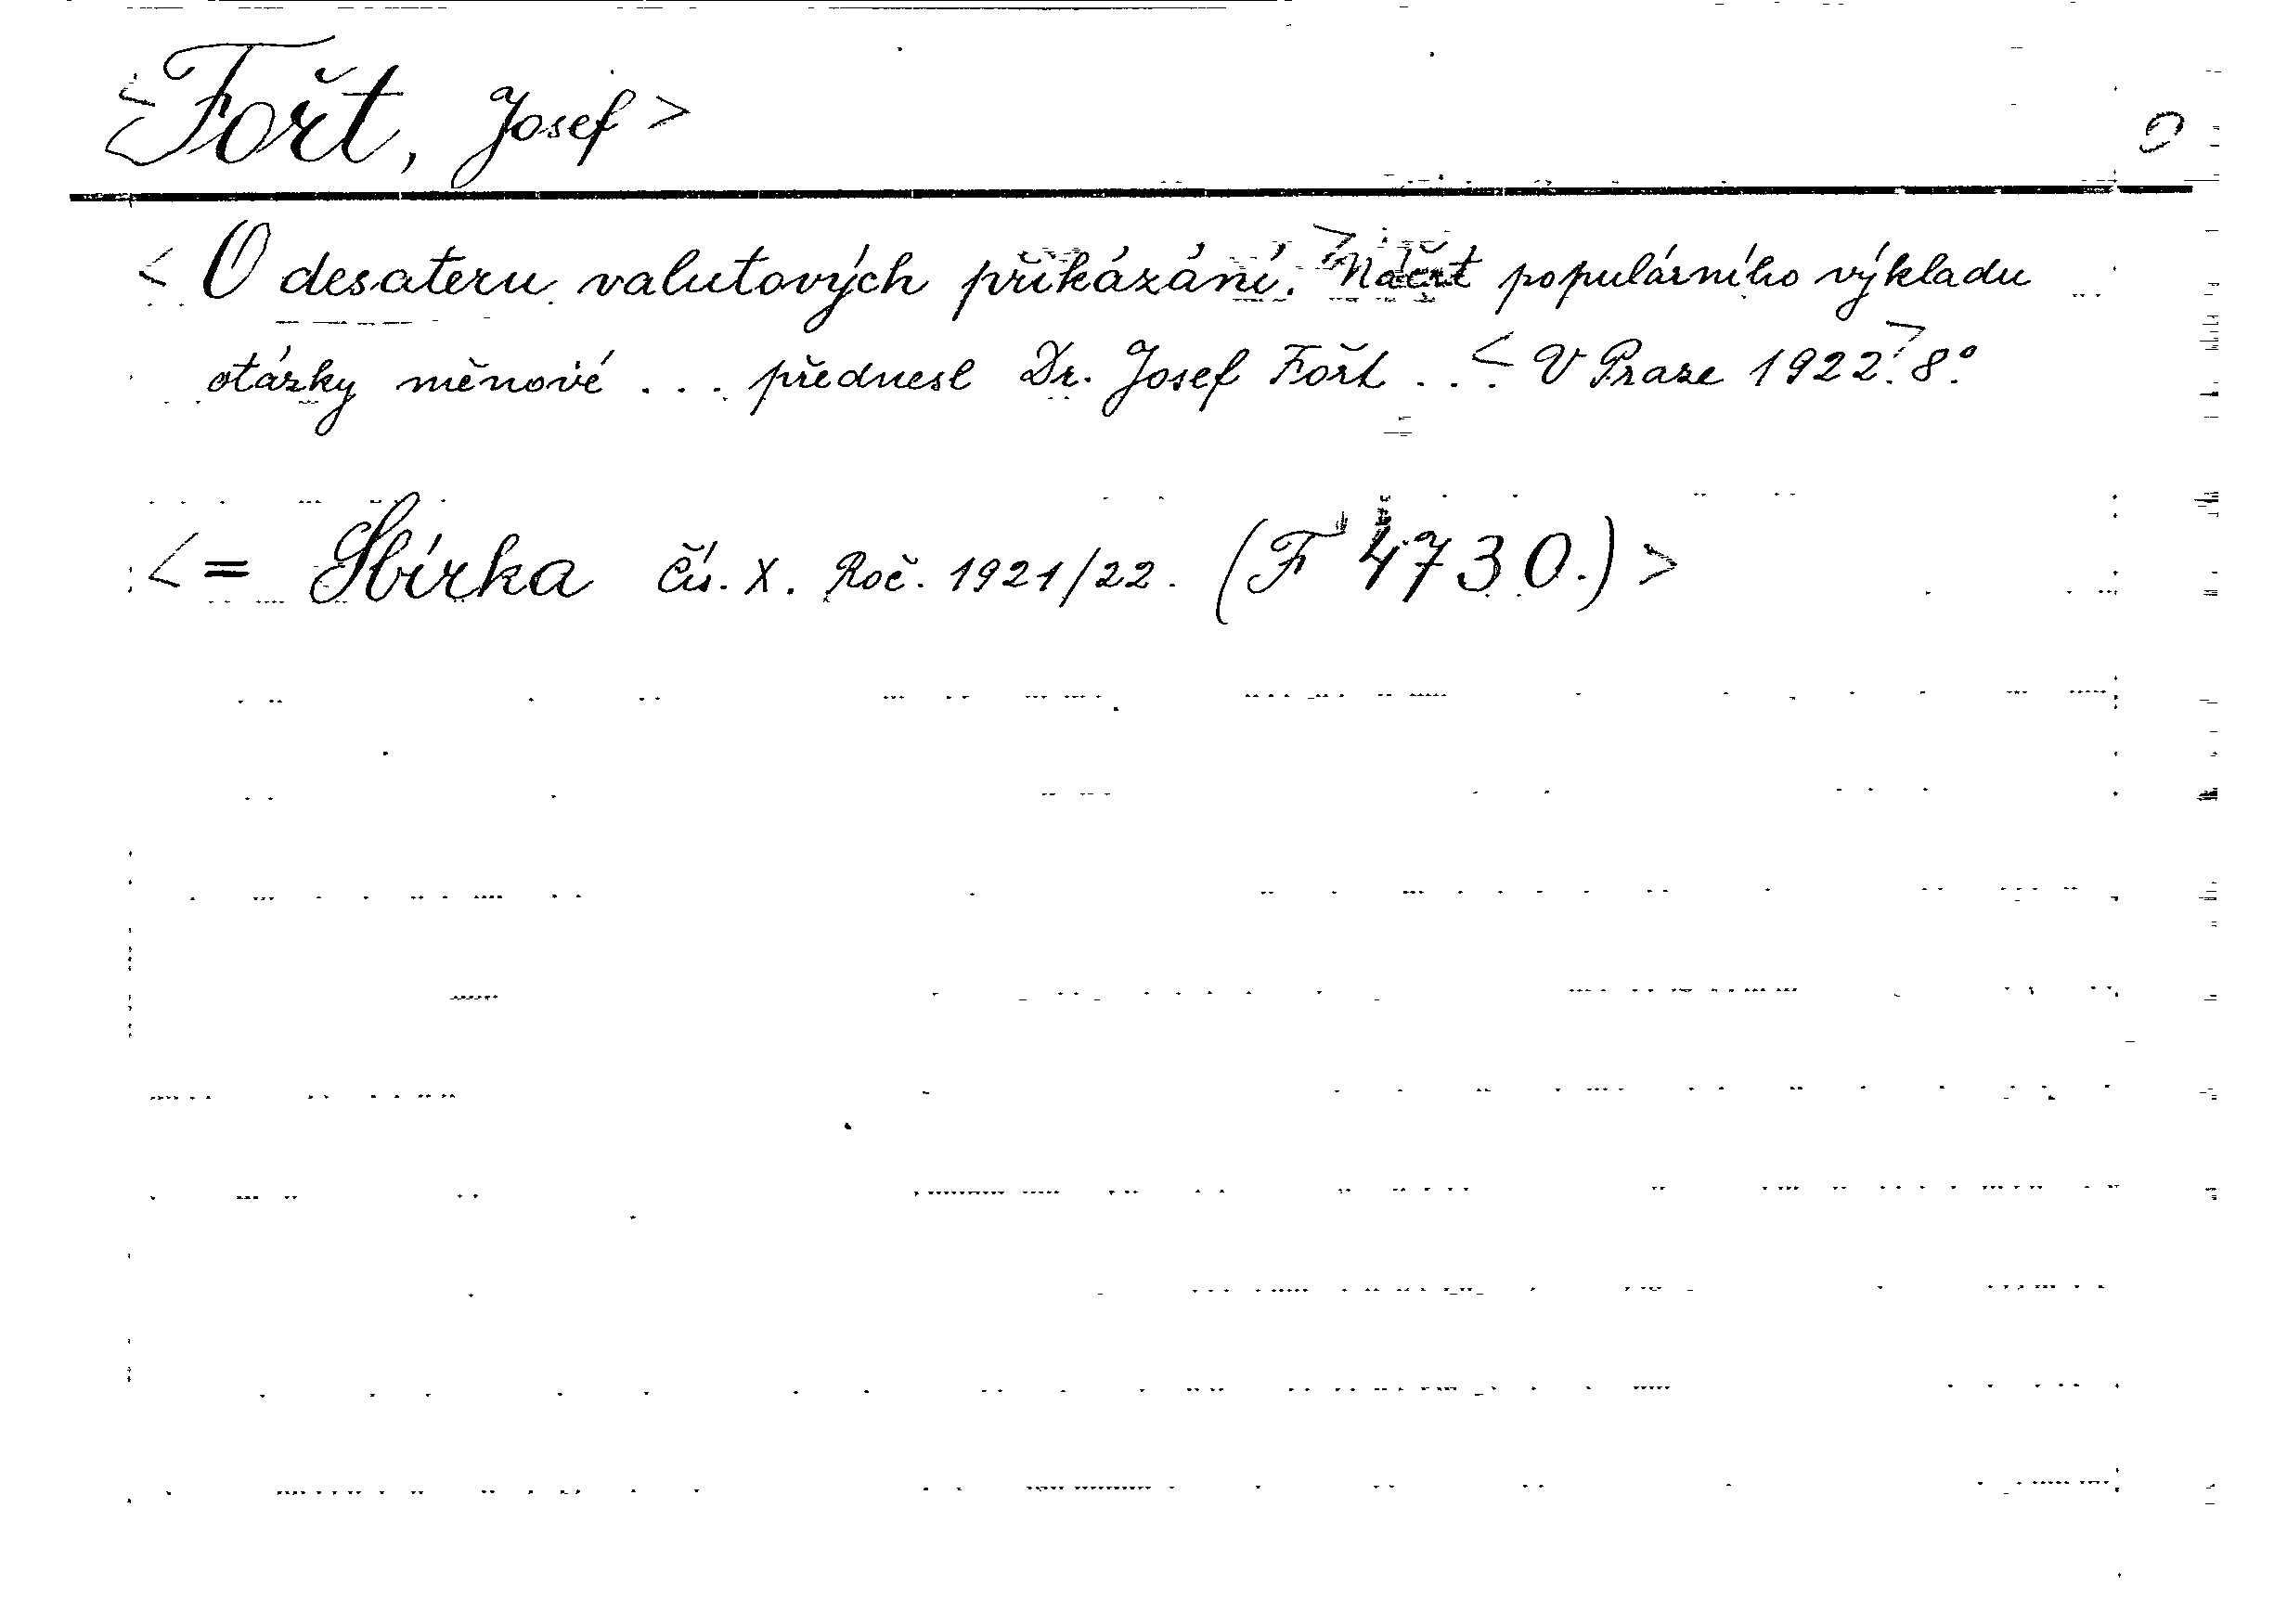 <Fořt, Josef>
<O desateru valutových přikázání.> Náčrt populárního výkladu
otázky měnové ... přednesl Dr. Josef Fořt ... <V Praze 1922.> 8.°
<= Sbírka čís. X. Roč. 1921/22. (F 4730.)>